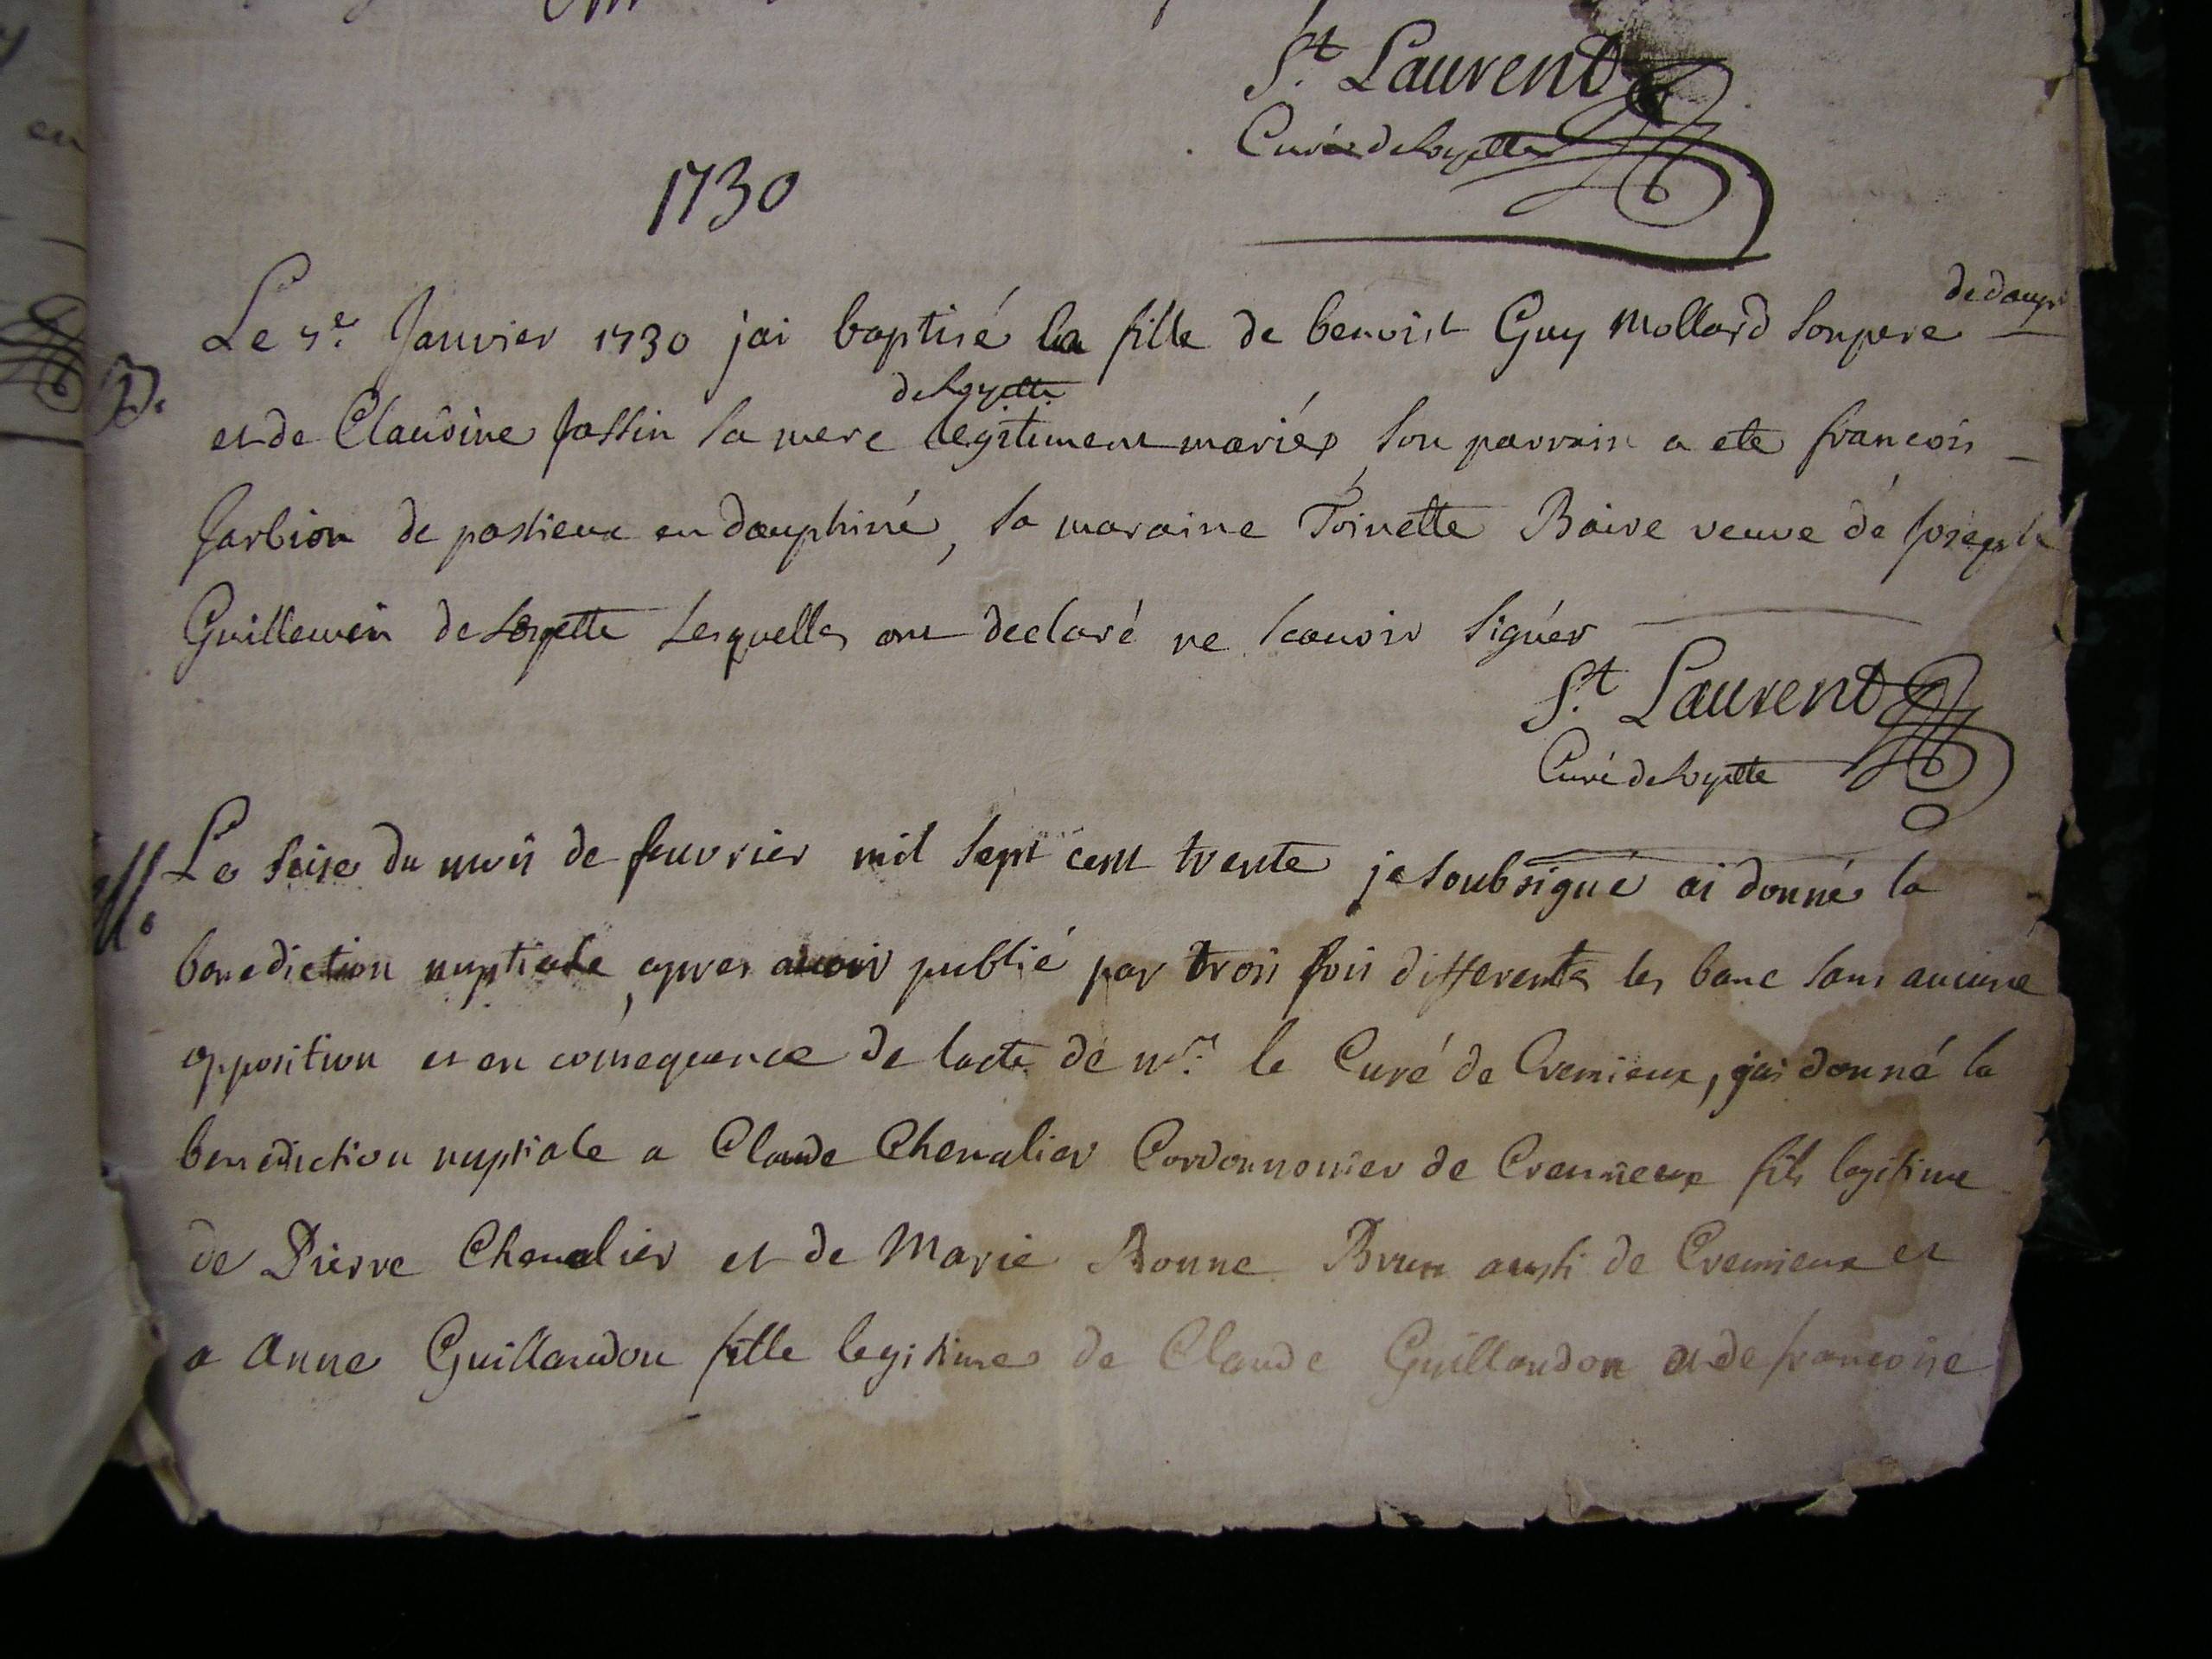 St. Laurent
Curé de Loyette
1730
de daup
Le 7e. Janvier 1730 jai baptisé la fille de benoist Guy Mollard son pere
de Loyette
B.
et de Claudine Jassin sa mere legitiment mariés, son parrain a ete francois
Jarbion de postieux en dauphiné, sa maraine Toinette Boire veuve de joseph
Guillemin de Loyette lesquelles ont declaré ne scauoir signer
St. Laurent
Curé de Loyette
M.
Le seise du mois de feuvrier mil sept cent trente je soubsigné ai donné la
benediction nuptiale, apres auoir publié par trois fois differents les banc sans aucune
opposition et en consequence de lacte de mr. le Curé de Cremieux, jai donné la
benediction nuptiale a Claude Cheualier Cordonnonier de Cremieux fils legitime
de Pierre Cheualier et de Marie Bonne Brun aussi de Cremieux et
a Anne Guillaudon fille legitime de Claude Guillaudon et de francoise